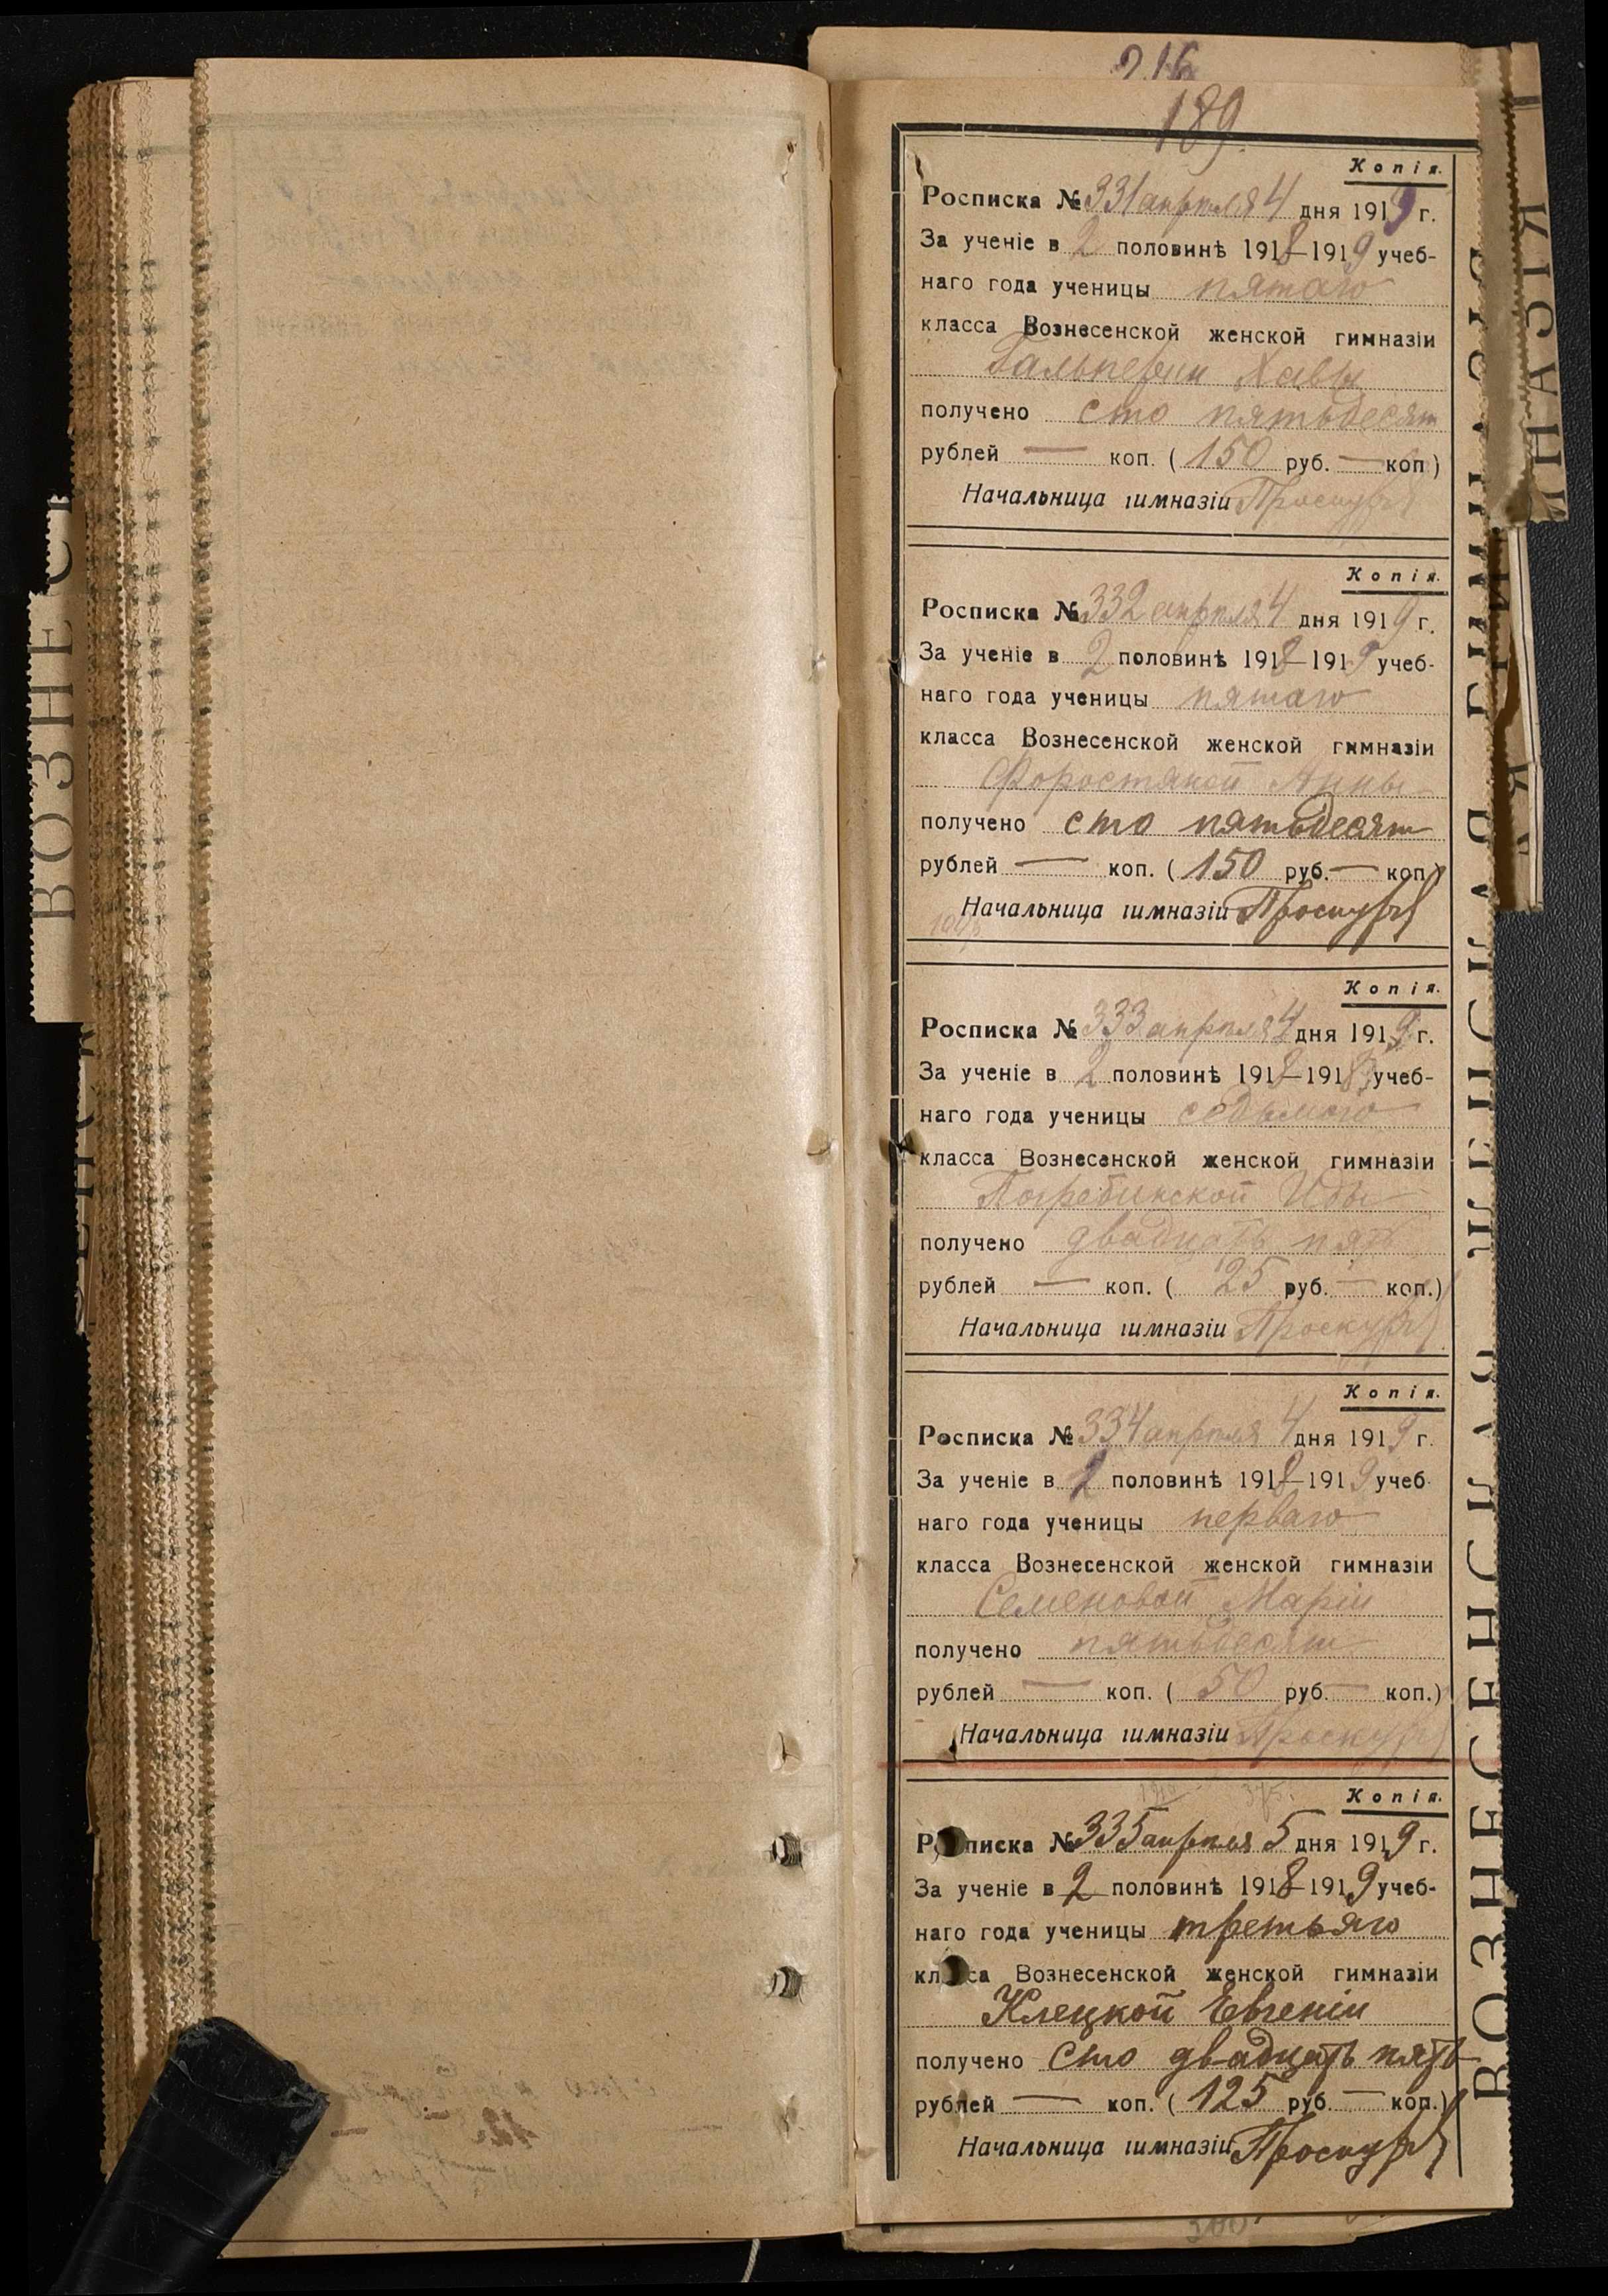 216
189.
Копія.
Росписка № 331 апрѣля 4 дня 1919 г.
За ученіе в 2 половинѣ 1918–1919 учеб-
наго года ученицы пятаго
класса Вознесенской женской гимназіи
Гальперин Хавы
получено сто пятьдесят
рублей — коп. (150 руб. — коп)
Начальница гимназіи
Копія.
Росписка № 332 апрѣля 4 дня 1919 г.
За ученіе в 2 половинѣ 1918–1919 учеб-
наго года ученицы пятаго
класса Вознесенской женской гимназіи
Форостяной Анны
получено сто пятьдесят
рублей — коп. (150 руб. — коп)
Начальница гимназіи
Копія.
Росписка № 333 апрѣля 4 дня 1919 г.
За ученіе в 2 половинѣ 1918–1919 учеб-
наго года ученицы седьмого
класса Вознесенской женской гимназіи
Погребинской Иды
получено двадцать пять
рублей — коп. (25 руб. — коп.)
Начальница гимназіи
Копія.
Росписка № 334 апрѣля 4 дня 1919 г.
За ученіе в 2 половинѣ 1918–1919 учеб
наго года ученицы перваго
класса Вознесенской женской гимназіи
Семеновой Маріи
получено пятьдесят
рублей — коп. (50 руб. — коп.)
Начальница гимназіи
375.
Копія.
Росписка № 335 апрѣля 5 дня 1919 г.
За ученіе в 2 половинѣ 1918–1919 учеб-
наго года ученицы третьяго
класса Вознесенской женской гимназіи
Клецкой Евгеніи
получено сто двадцать пять
рублей — коп. (125 руб. — коп.)
Начальница гимназіи
300
ВОЗНЕС